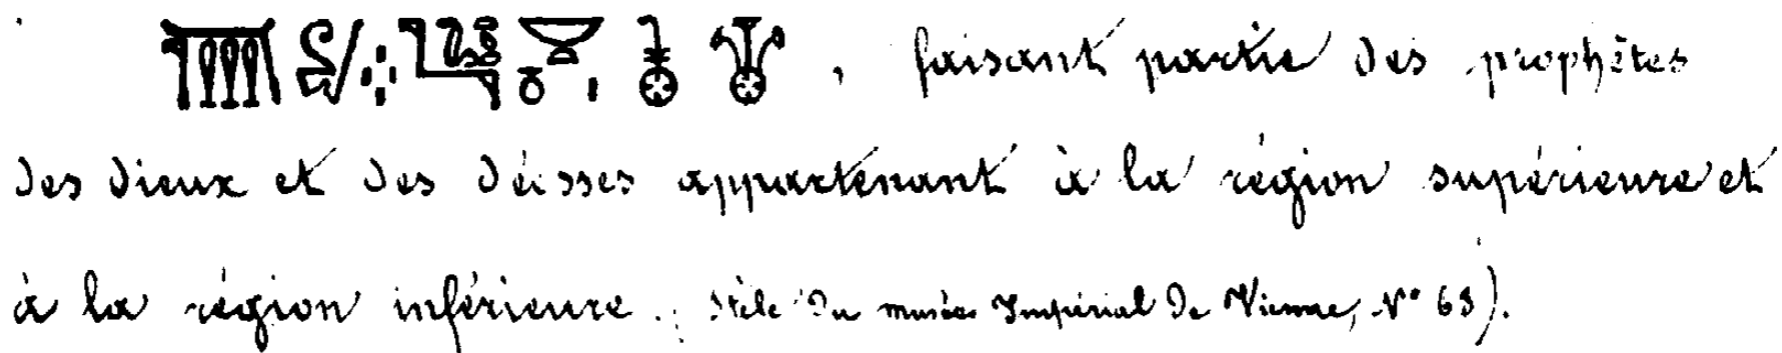 , faisant partie des prophètes
des dieux et des déesses appartenant à la région supérieure et
à la région inférieure. Stèle du musée Impérial de Vienne, N° 63).